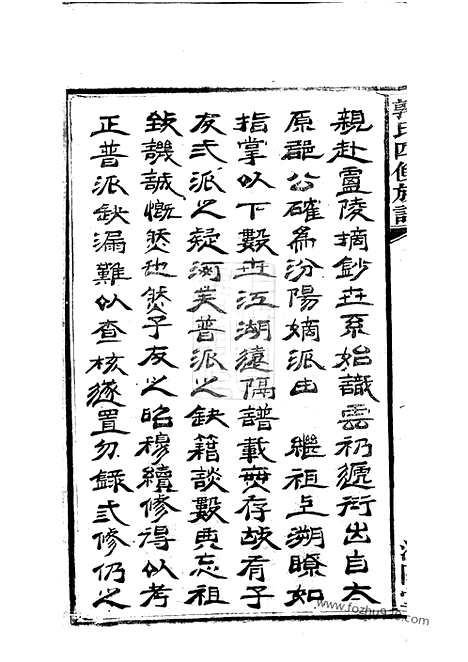 郭氏四修族譜
親赴盧陵摘鈔世系始識雲礽遞衍出自太
原郡公確為汾陽嫡派由　繼祖上溯瞭如
指掌以下數世江湖遠隔譜載無存故有子
友弍派之疑河矣普派之缺籍談數典忘祖
致譏誠慨然也然子友之昭穆續修得以考
正普派缺漏難以查核遂置勿錄弍修仍之
www.fozhu920.com